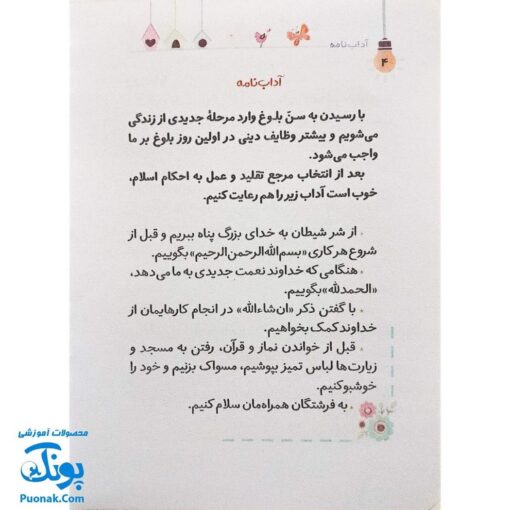 آداب‌نامه
۴
آداب‌نامه
با رسیدن به سنّ بلوغ وارد مرحلهٔ جدیدی از زندگی
می‌شویم و بیشتر وظایف دینی در اولین روز بلوغ بر ما
واجب می‌شود.
بعد از انتخاب مرجع تقلید و عمل به احکام اسلام،
خوب است آداب زیر را هم رعایت کنیم.
• از شر شیطان به خدای بزرگ پناه ببریم و قبل از
شروع هر کاری «بسم‌الله‌الرحمن‌الرحیم» بگوییم.
• هنگامی که خداوند نعمت جدیدی به ما می‌دهد،
«الحمدلله» بگوییم.
• با گفتن ذکر «ان‌شاءالله» در انجام کارهایمان از
خداوند کمک بخواهیم.
• قبل از خواندن نماز و قرآن، رفتن به مسجد و
زیارت‌ها لباس تمیز بپوشیم، مسواک بزنیم و خود را
خوشبو کنیم.
• به فرشتگان همراه‌مان سلام کنیم.
محصولات آموزشی
پونک
Puonak.Com